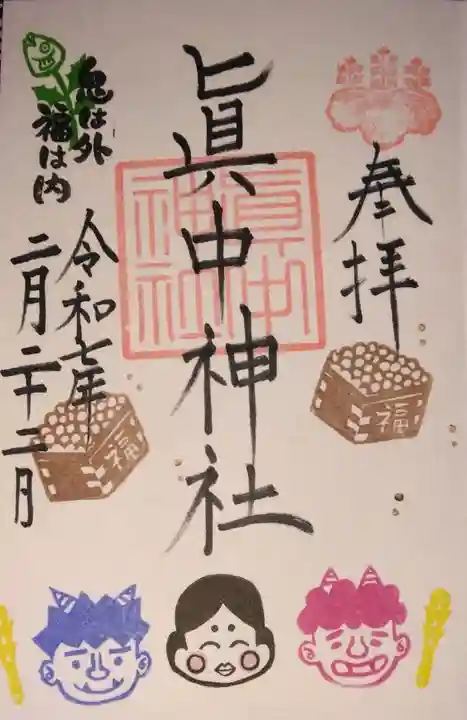 奉拝
眞中神社
眞中
神社
令和七年
二月二十二日
鬼は外
福は内
福
福